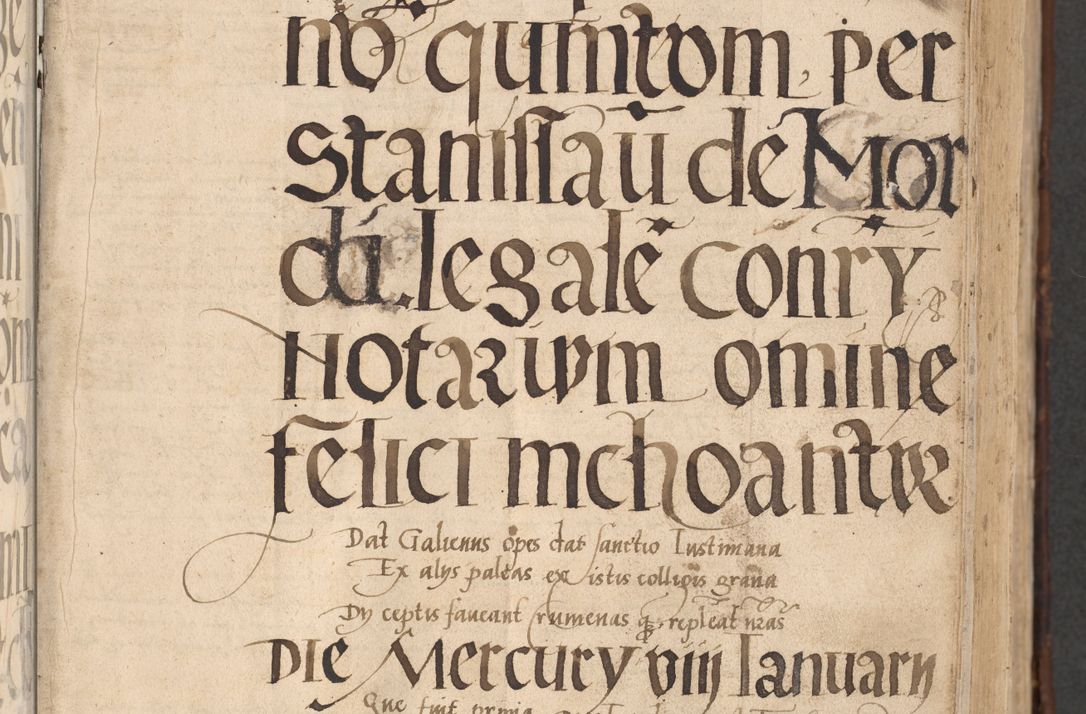 nō quintom per
Stanislaū de Mor
dū. legalē Conry
Notarium omine
felici inchoantur
Dat Galienus opes dat sanctio Iustiniana
Ex alijs paleas ex istis colligis grana
Dij ceptis faveant crumenas q; repleat nr̄as
Die Mercurij viij Ianuarij
Que fuit prima